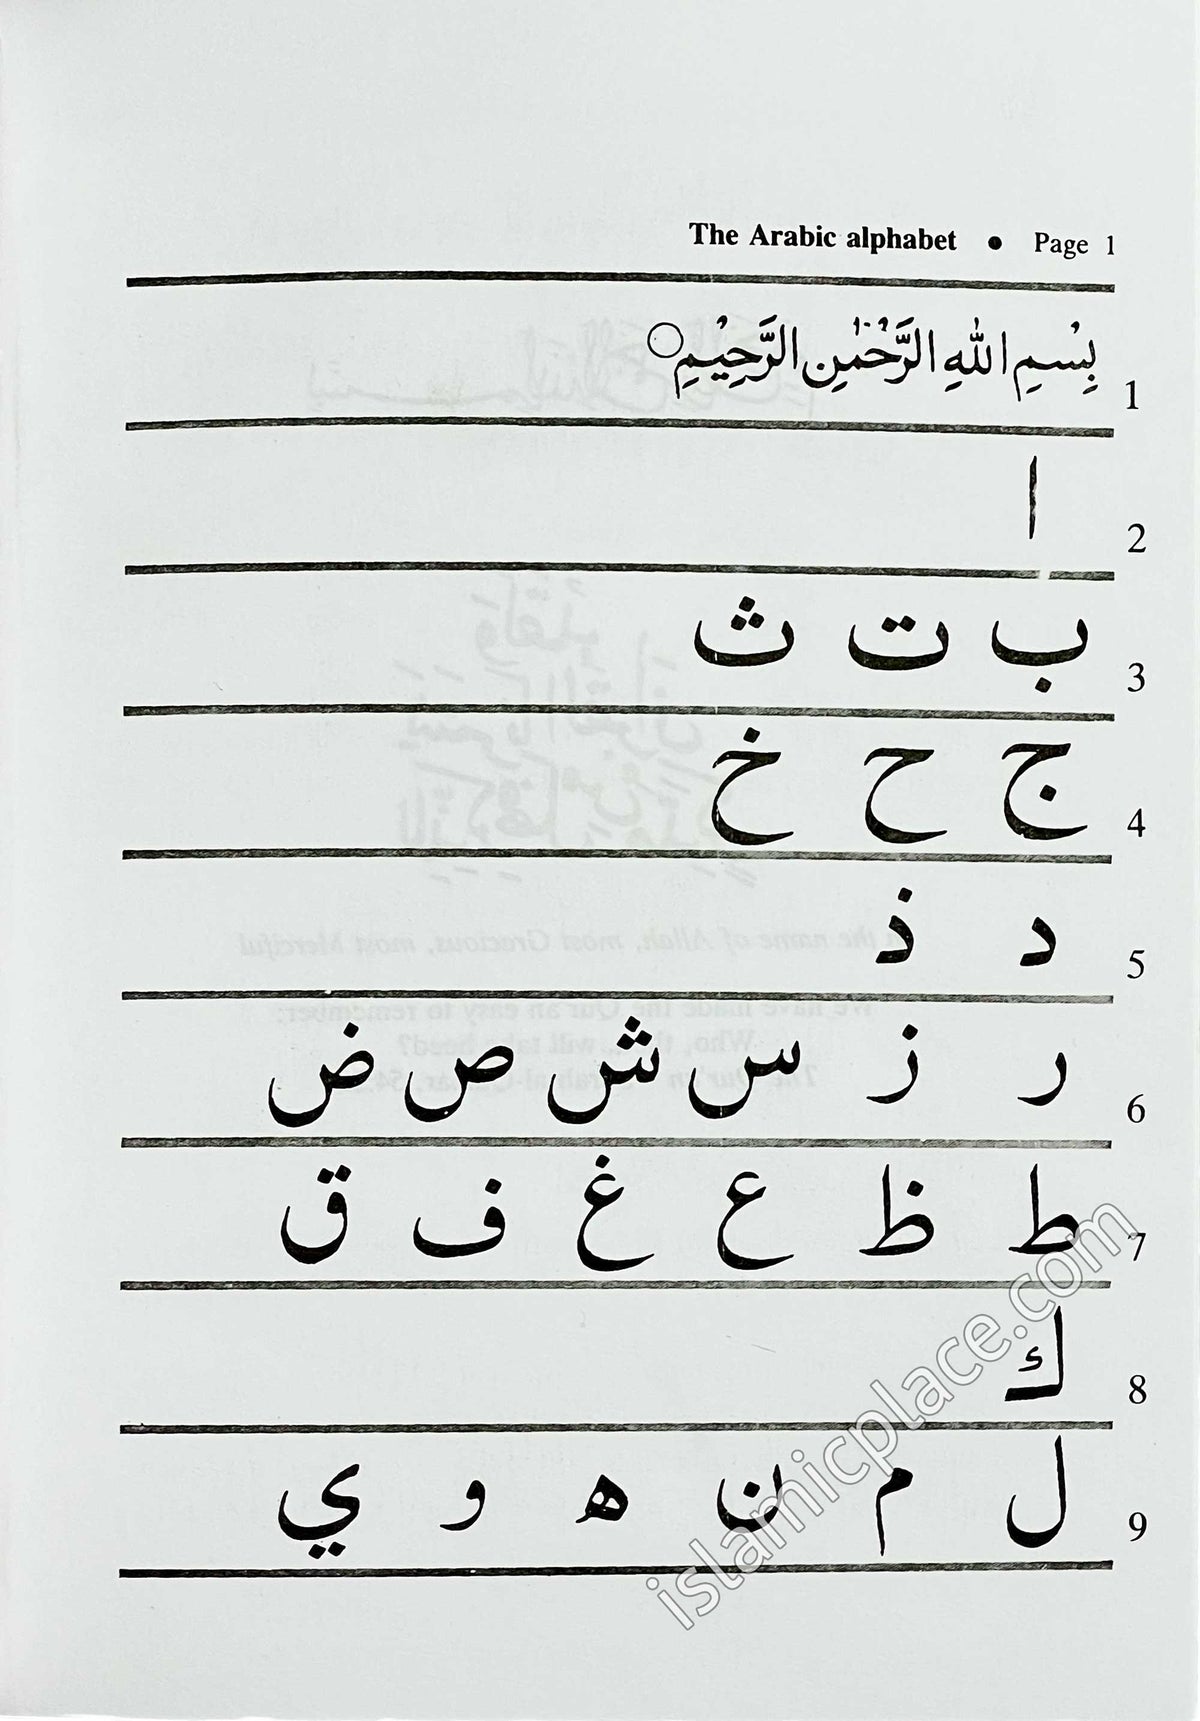 The Arabic alphabet • Page 1
بِسْمِ اللهِ الرَّحْمٰنِ الرَّحِيْمِ ○ 1
ا 2
ب ت ث 3
ج ح خ 4
د ذ 5
ر ز س ش ص ض 6
ط ظ ع غ ف ق 7
ك 8
ل م ن ه و ي 9
islamicplace.com